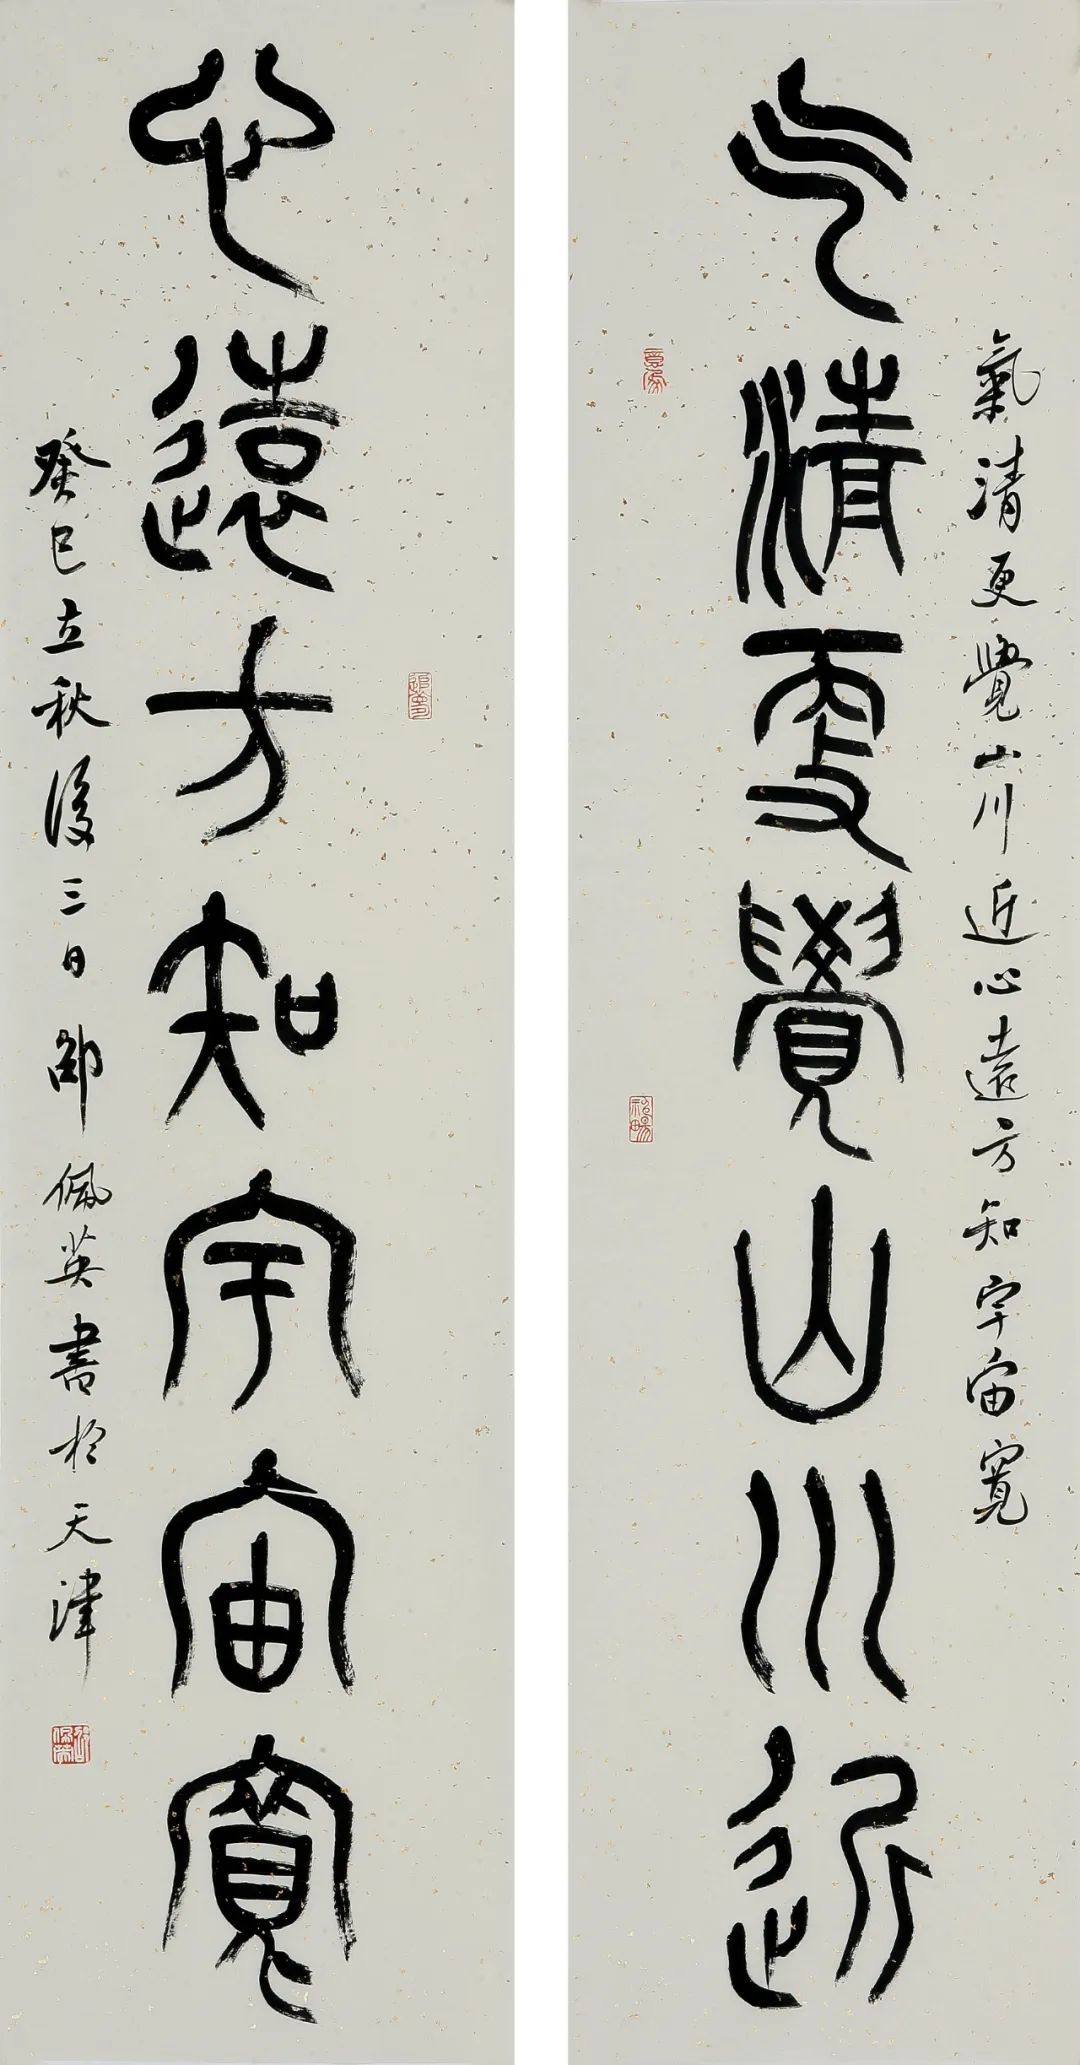 气清更觉山川近
氣清更覺山川近心遠方知宇宙寬
心遠方知宇宙寬
癸巳立秋後三日邵佩英書於天津